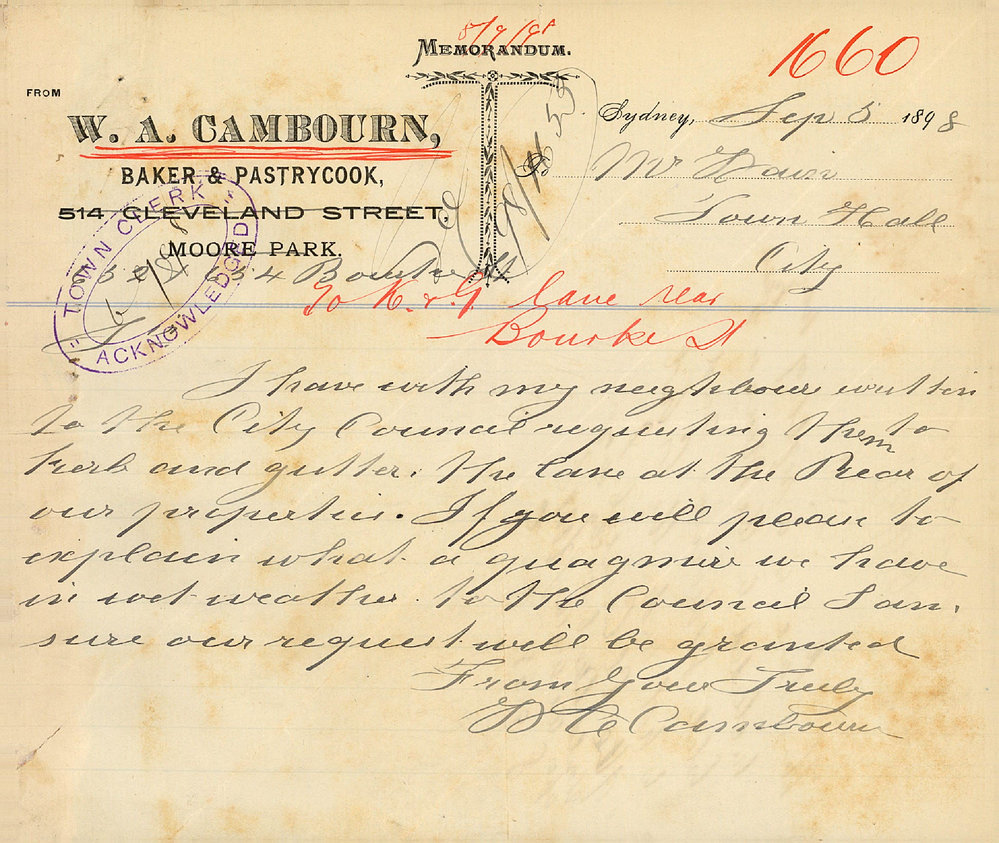 8/9/98
MEMORANDUM.
1660
FROM
W. A. CAMBOURN,
BAKER & PASTRYCOOK,
514 CLEVELAND STREET.
MOORE PARK.
634 Bourke St
Sydney, Sep 5 1898
To Mr
Town Hall
City
98/1153
TOWN CLERK
6/9/98
ACKNOWLEDGED
To K. & G. lane rear
Bourke St
I have with my neighbour written
to the City Council requesting them to
kerb and gutter. the lane at the Rear of
our properties. If you will please to
explain what a quagmire we have
in wet weather. to the Council I am.
sure our request will be granted
From Yours Truly
W A Cambourn